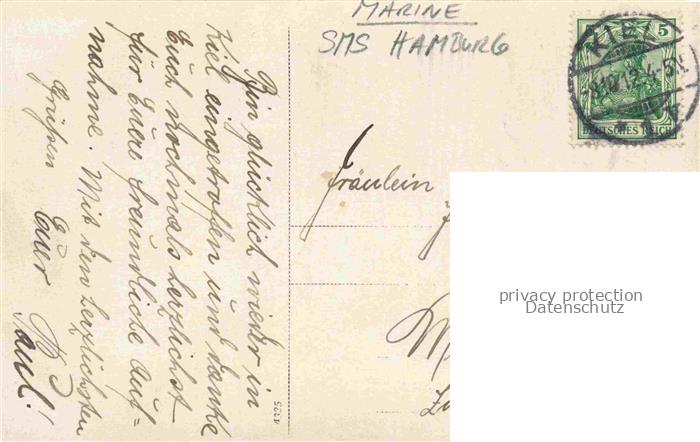 MARINE
SMS HAMBURG
5
KIEL
8.10.12.4-5N.
DEUTSCHES REICH
Bin glücklich wieder in
Kiel eingetroffen und danke
Euch nochmals herzlichst
für Euere freundliche Auf=
nahme. Mit den herzlichsten
Grüßen
Euer
Paul!
Fräulein
privacy protection
Datenschutz